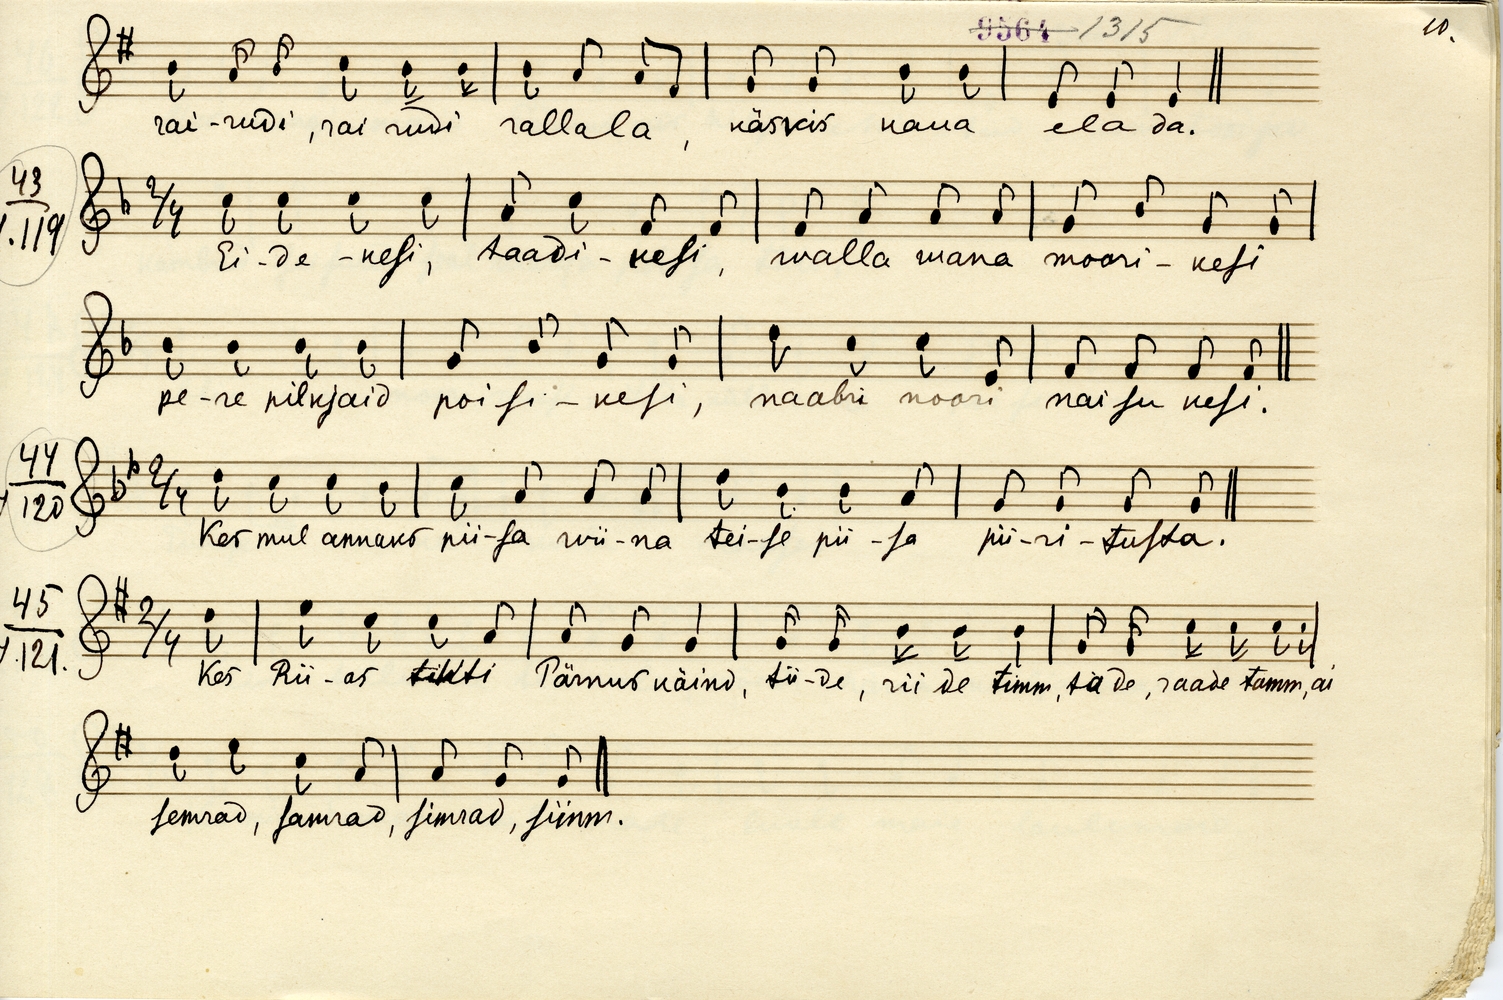 9564 1315 10.
rai-rudi, rai rudi rallala, käskis kaua ela da.
43
119
2/4
Ei-de-kesi, taadi-kesi, walla wana moori-kesi
pe-re pilksaid poisi-kesi, naabri noori naisu kesi.
44
120
2/4
Kes mul annaks pii-sa wii-na tei-se pii-sa pii-ri-tusta.
45
121.
2/4
Kes Rii-as tikti Pärnus käind, tii-de, rii de timm, tä de, raade tamm, ai
semrad, samrad, simrad, siimm.